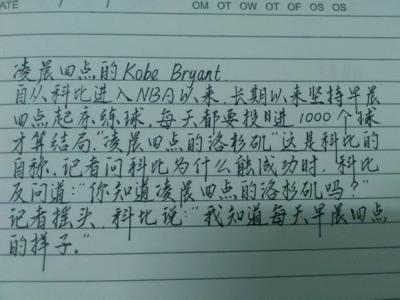 DATE / /
OM OT OW OT OF OS OS
凌晨四点的Kobe Bryant.
自从科比进入NBA以来,长期以来坚持早晨
四点起床练球,每天都要投进1000个球
才算结局,"凌晨四点的洛杉矶"这是科比的
自称,记者问科比为什么能成功时,科比
反问道:"你知道凌晨四点的洛杉矶吗?"
记者摇头,科比说:"我知道每天早晨四点
的样子."